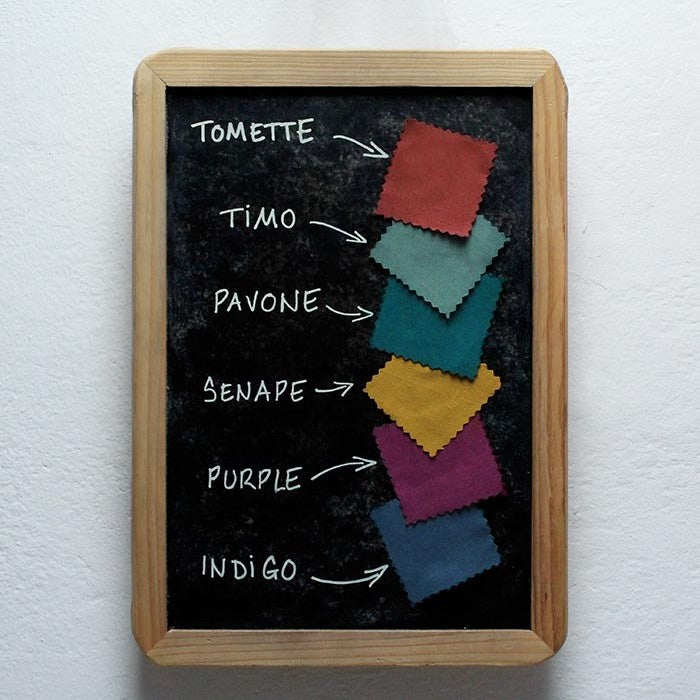 TOMETTE
TIMO
PAVONE
SENAPE
PURPLE
INDIGO